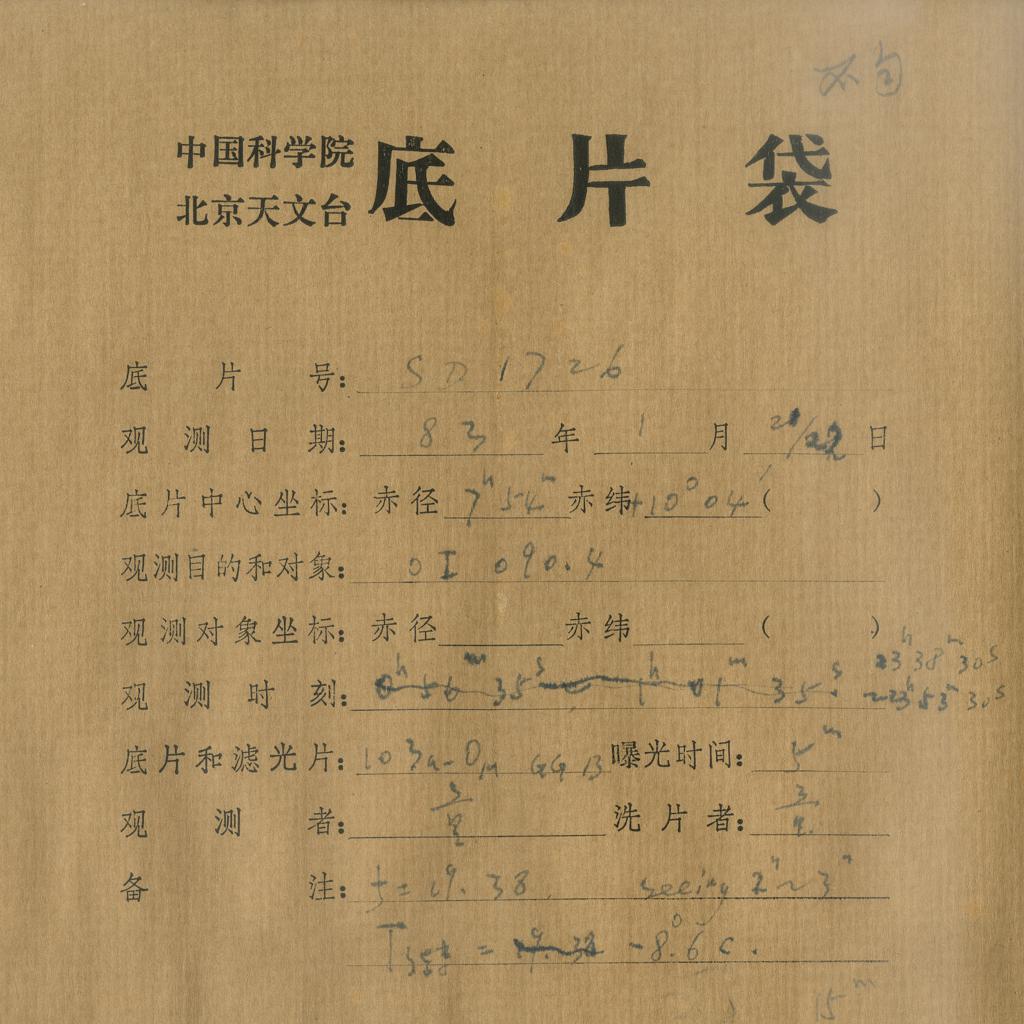 中国科学院 底片袋
北京天文台
底片号: SD1726
观测日期: 83年 1月 21/22日
底片中心坐标: 赤径 7h54m 赤纬 +10°04′ ( )
观测目的和对象: OI 090.4
观测对象坐标: 赤径 赤纬 ( )
23h38m30s
观测时刻: 0h56m35s 1h01m35s ~23h53m30s
底片和滤光片: 103a-O, GG13 曝光时间: 5m
观测者: 洗片者:
备注: f=19.38 seeing 2"~3"
T = 19.38 -8.6°C.
15m